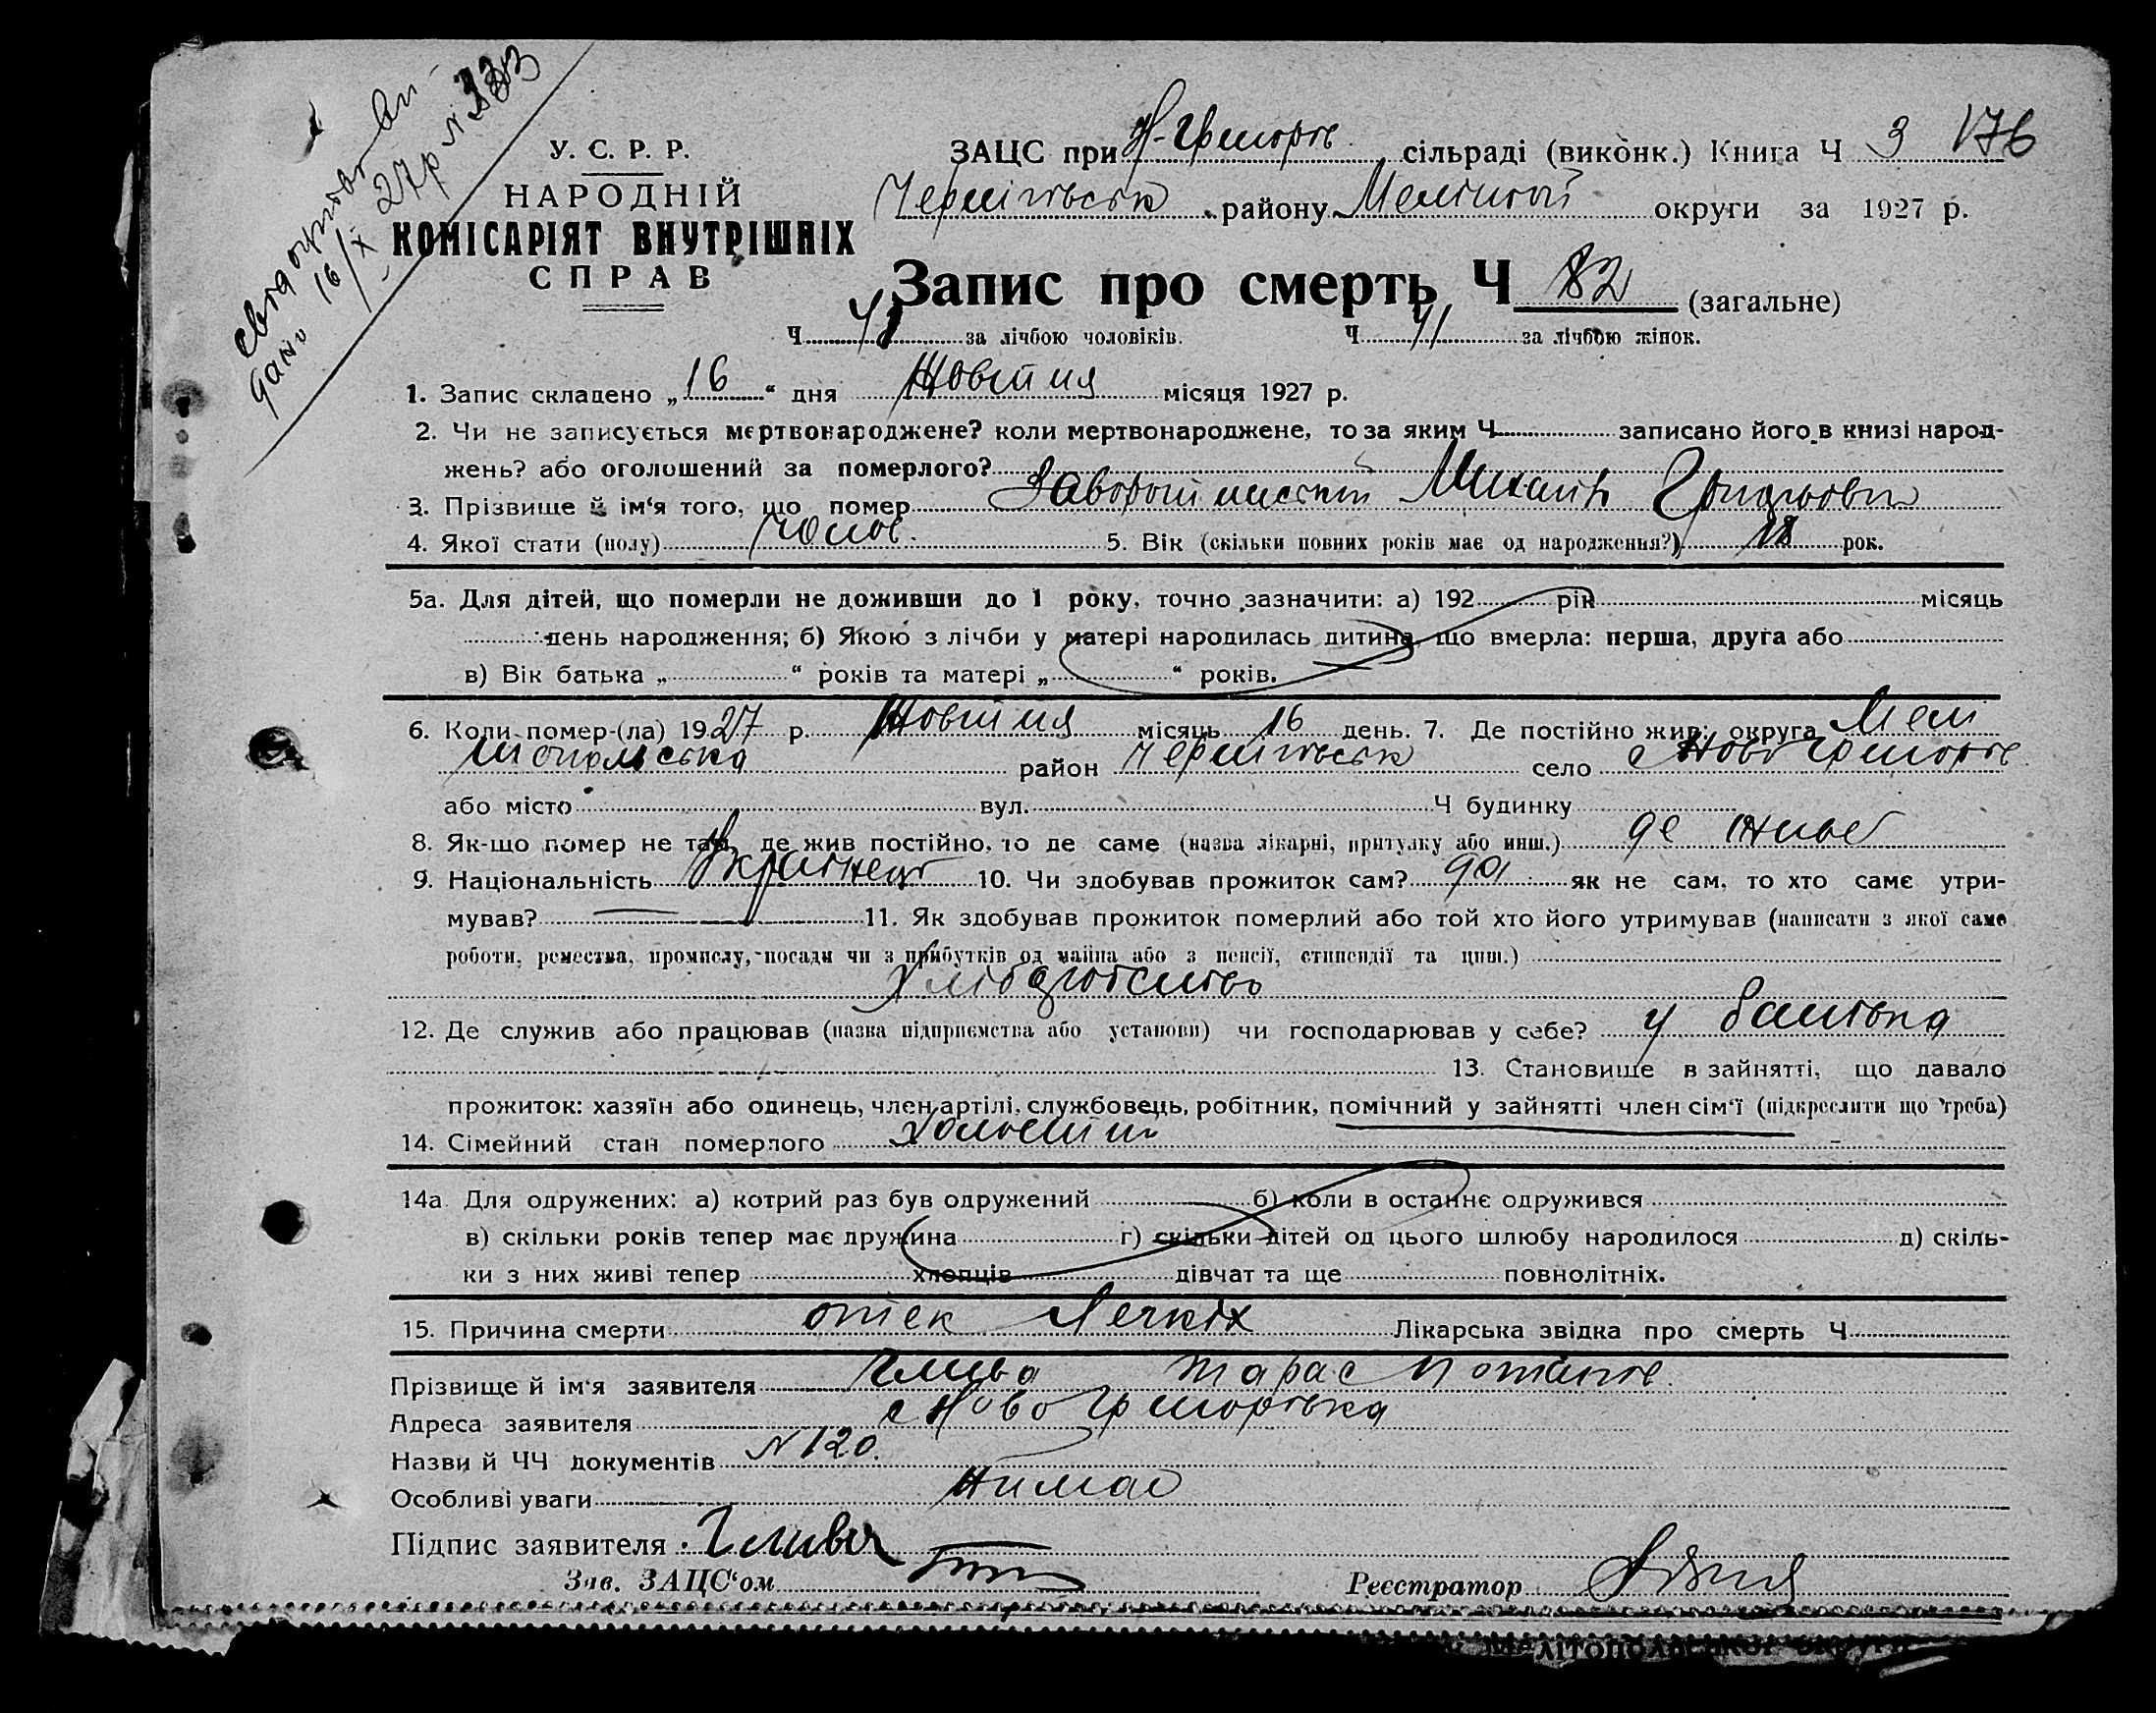 свідоцтво
дано 16/X 27р №
У. С. Р. Р.
НАРОДНІЙ
КОМІСАРІЯТ ВНУТРІШНІХ
СПРАВ
ЗАЦС при Н-Григорів. сільраді (виконк.) Книга Ч 3 176
Чернігівськ району Меліт округи за 1927 р.
Запис про смерть Ч 82 (загальне)
Ч 41 за лічбою чоловіків. Ч 41 за лічбою жінок.
1. Запис складено „ 16 “ дня Жовтня місяця 1927 р.
2. Чи не записується мертвонароджене? коли мертвонароджене, то за яким Ч записано його в книзі народ-
жень? або оголошений за померлого?
3. Прізвище й ім‘я того, що помер Михаил
4. Якої стати (полу) чолов. 5. Вік (скільки повних років має од народження?) 18 рок.
5а. Для дітей, що померли не доживши до 1 року, точно зазначити: а) 192 рік місяць
день народження; б) Якою з лічби у матері народилась дитина, що вмерла: перша, друга або
в) Вік батька „ “ років та матері „ “ років.
6. Коли помер-(ла) 1927 р. Жовтня місяць 16 день. 7. Де постійно жив: округа Мелі
топольська район Чернігівськ село с Ново Григорів.
або місто вул. Ч будинку
8. Як-що помер не там, де жив постійно, то де саме (назва лікарні, притулку або инш.) де жив
9. Національність Українець 10. Чи здобував прожиток сам? да як не сам, то хто саме утри-
мував? — 11. Як здобував прожиток померлий або той хто його утримував (написати з якої саме
роботи, ремества, промислу, посади чи з прибутків од майна або з пенсії, стипендії та инш.)
Хліборобство
12. Де служив або працював (назва підприємства або установи) чи господарював у себе? у батька
13. Становище в зайнятті, що давало
прожиток: хазяїн або одинець, член артілі, службовець, робітник, помічний у зайнятті член сім‘ї (підкреслити що треба)
14. Сімейний стан померлого холостий
14а. Для одружених: а) котрий раз був одружений б) коли в останнє одружився
в) скільки років тепер має дружина г) скільки дітей од цього шлюбу народилося д) скіль-
ки з них живі тепер хлопців дівчат та ще повнолітніх.
15. Причина смерти отек Легких Лікарська звідка про смерть Ч
Прізвище й ім‘я заявителя Глива Тарас Потапов.
Адреса заявителя с Ново Григорівка
Назви й ЧЧ документів N 120.
Особливі уваги Нимае
Підпис заявителя Глива
Зав. ЗАЦС‘ом Реєстратор